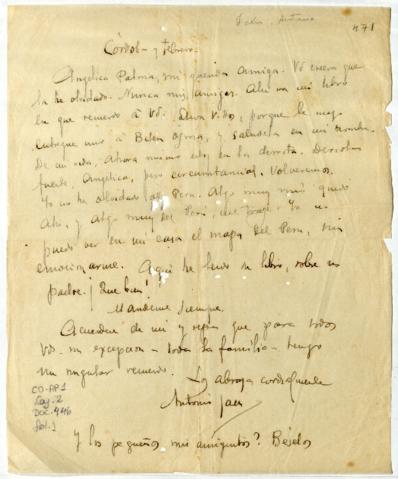 Jaen, Antonio
471
Córdoba y febrero.
Angélica Palma, mi querida amiga. Vd creerá que
la he olvidado. Nunca mis amigas. Ahí va mi libro
en que recuerdo a Vd. Lleva 2 vidos, porque le ruego
entregue uno a Belén Osma, y salúdela en mi nombre.
De mi vida, ahora mismo estoy en la derrota. Derrota
fuerte, Angélica, pero circunstancial. Volveremos.
Yo no he olvidado al Perú. Algo muy mío quedó
ahí, y algo muy del Perú, me traje. Yo no
puedo ver en mi casa el mapa del Perú, sin
emocionarme. Aquí he leído su libro, sobre su
padre. ¡Que bien!
Mándeme siempre.
Acuérdese de mi y sepan que para todos
Vds. sin excepción - toda la familia - tengo
un singular recuerdo.
Les abraza cordialmente
Antonio Jaen
Y los pequeños mis amiguitos? Béselos
CO-AP1
Caj. 2
DOC. 446
Fol. 1